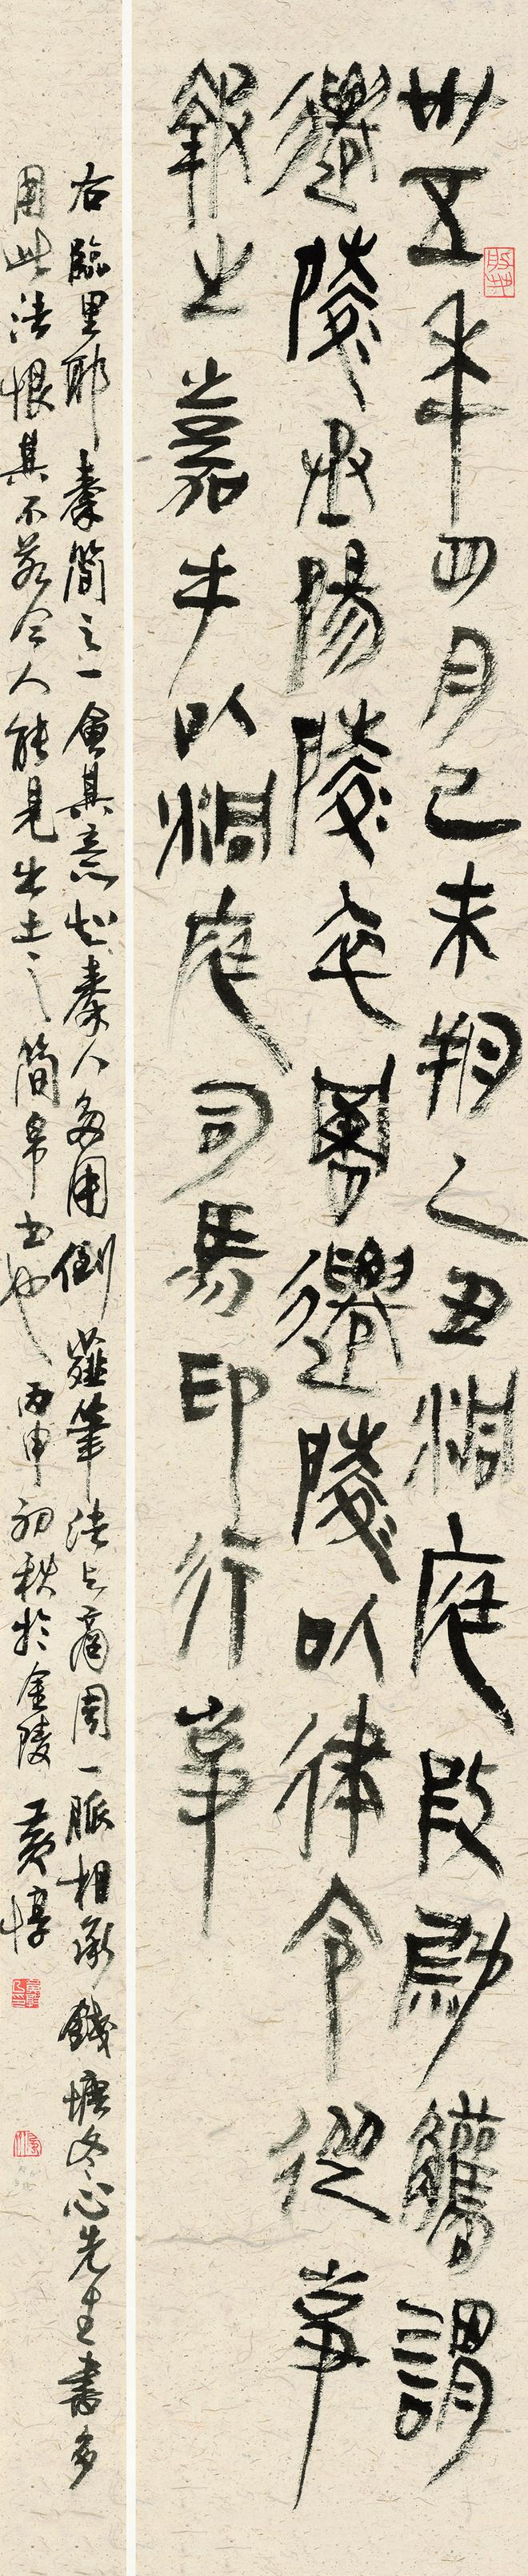 卅五年四月己未朔乙丑洞庭叚尉觿謂
遷陵丞陽陵卒署遷陵以律令從事
報之嘉手以洞庭司馬印行事
右臨里耶秦簡之一會其意也秦人多用倒薤筆法與商周一脈相承錢塘冬心先生書多
用此法恨其不若今人能見出土之簡帛書也丙申初秋於金陵黃惇